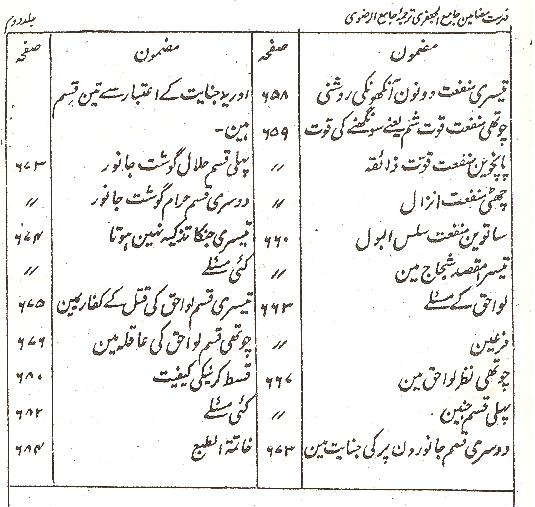 فہرست مضامین جامع الجعفری ترجمہ جامع الرضوی
جلد دوم
مضمون صفحہ
تیسری منفعت دونون آنکھونکی روشنی ۶۵۸
چوتھی منفعت قوت شم یعنے سونگھنے کی قوت ۶۵۹
پانچوین منفعت قوت ذائقہ 〃
چھٹی منفعت انزال 〃
ساتوین منفعت سلس البول ۶۶۰
تیسرا مقصد شجاج مین 〃
لواحق کے مسئلے ۶۶۳
فرعین 〃
چوتھی نظر لواحق مین ۶۶۷
پہلی قسم جنین 〃
دوسری قسم جانورون پر کی جنایت مین ۶۷۳
مضمون صفحہ
اور یہ جنایت کے اعتبار سے تین قسم
ہین۔
پہلی قسم حلال گوشت جانور ۶۷۳
دوسری قسم حرام گوشت جانور 〃
تیسری جنکا تذکیہ نہین ہوتا ۶۷۴
کئی مسئلے 〃
تیسری قسم لواحق کی قتل کے کفارہ مین ۶۷۵
چوتھی قسم لواحق کی عاقلہ مین ۶۷۶
قسط کرنیکی کیفیت ۶۸۰
کئی مسئلے ۶۸۲
خاتمۃ الطبع ۶۸۴